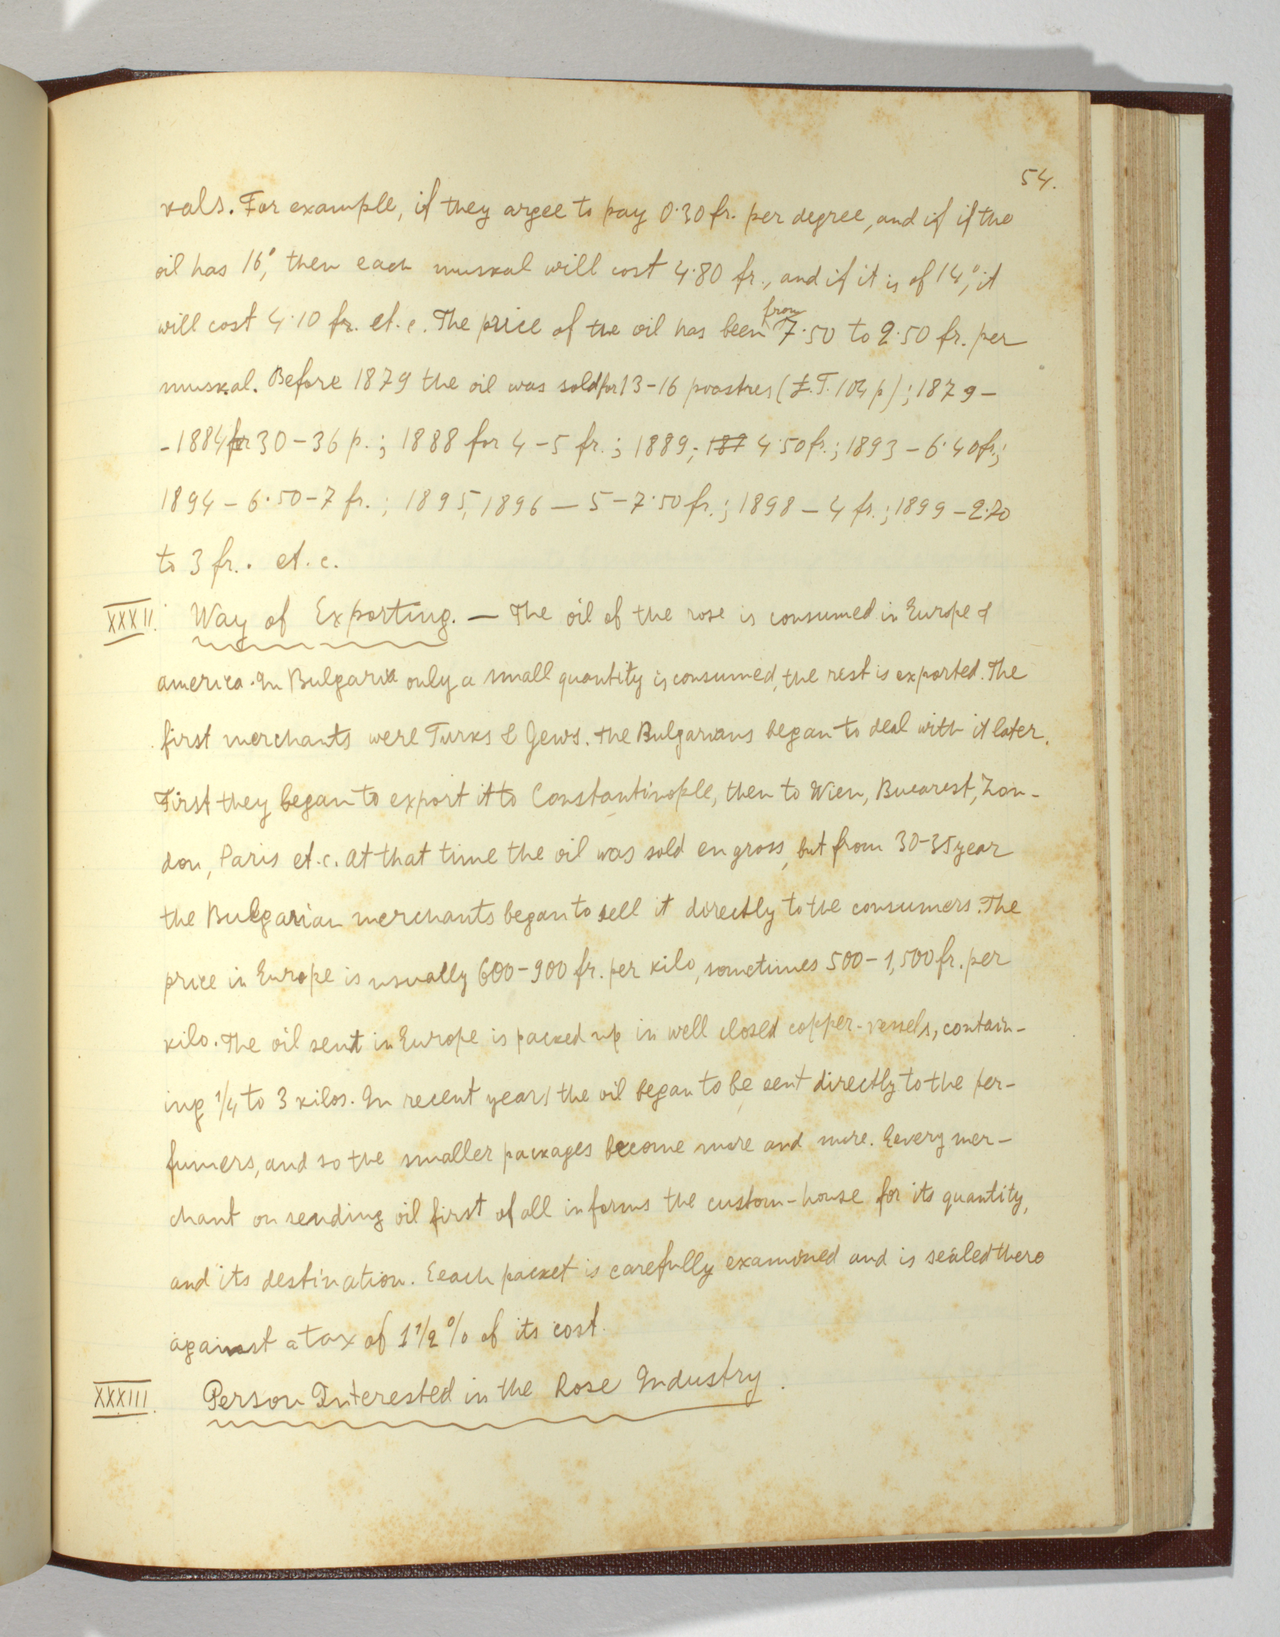 54.
kals. For example, if they argee to pay 0.30 fr. per degree, and if if the
oil has 16°, then each muskal will cost 4.80 fr., and if it is of 14°, it
will cost 4.10 fr. et. c. The price of the oil has been from 7.50 to 2.50 fr. per
muskal. Before 1879 the oil was sold for 13-16 piastres (£.T. 104 p); 1879 -
- 1884 for 30-36 p.; 1888 for 4-5 fr.; 1889; 187 4.50 fr.; 1893 - 6.40 fr.;
1894 - 6.50-7 fr.; 1895, 1896 — 5-7.50 fr.; 1898 - 4 fr.; 1899 - 2.20
to 3 fr.. et. c.
XXXII. Way of Exporting. — The oil of the rose is consumed in Europe &
america. In Bulgaria only a small quantity is consumed, the rest is exported. The
first merchants were Turks & Jews. the Bulgarians began to deal with it later.
First they began to export it to Constantinople, then to Wien, Bucarest, Lon-
don, Paris et. c. At that time the oil was sold en gross, but from 30-35 year
the Bulgarian merchants began to sell it directly to the consumers. The
price in Europe is usually 600-900 fr. per kilo, sometimes 500-1,500 fr. per
kilo. The oil sent in Europe is packed up in well closed copper-vessels, contain-
ing 1/4 to 3 kilos. In recent years the oil began to be sent directly to the per-
fumers, and so the smaller packages become more and more. Eevery mer-
chant on sending oil first of all informs the custom-house for its quantity,
and its destination. Eeach packet is carefully examined and is sealed there
against a tax of 1 1/2 % of its cost.
XXXIII. Person Interested in the Rose Industry.